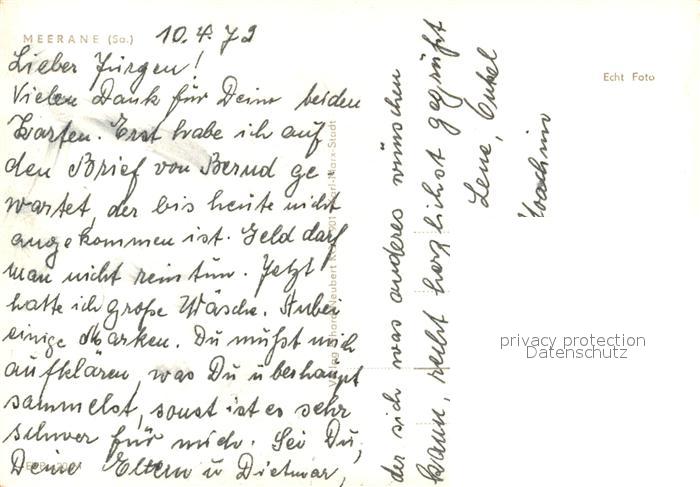 MEERANE (Sa.)
10.4.79
Lieber Jürgen!
Vielen Dank für Deine beiden
Karten. Erst habe ich auf
den Brief von Bernd ge
wartet, der bis heute nicht
angekommen ist. Geld darf
man nicht reintun. Jetzt
hatte ich große Wäsche. Anbei
einige Marken. Du mußt mich
aufklären, was Du überhaupt
sammelst, sonst ist es sehr
schwer für mich. Sei Du,
Deine Eltern u Dietmar,
der sich was anderes wünschen
kann, recht herzlichst gegrüßt
Lene, Onkel
Joachim
Echt Foto
privacy protection
Datenschutz